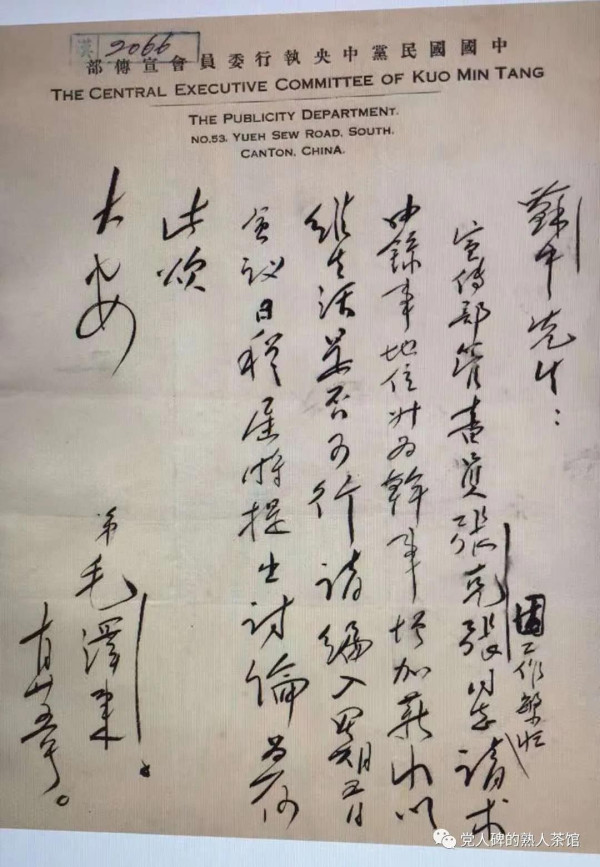 漢 2066
中國國民黨中央執行委員會宣傳部
THE CENTRAL EXECUTIVE COMMITTEE OF KUO MIN TANG
THE PUBLICITY DEPARTMENT.
NO.53, YUEH SEW ROAD, SOUTH.
CANTON, CHINA.
先生：
宣傳部管書員張克張同志請求
因工作繁忙
由錄事地位升為幹事增加薪水以
維生活是否可行請編入五日
會議日程屆時提出討論為荷
此頌
大安
弟毛澤東。
党人碑的熟人茶馆